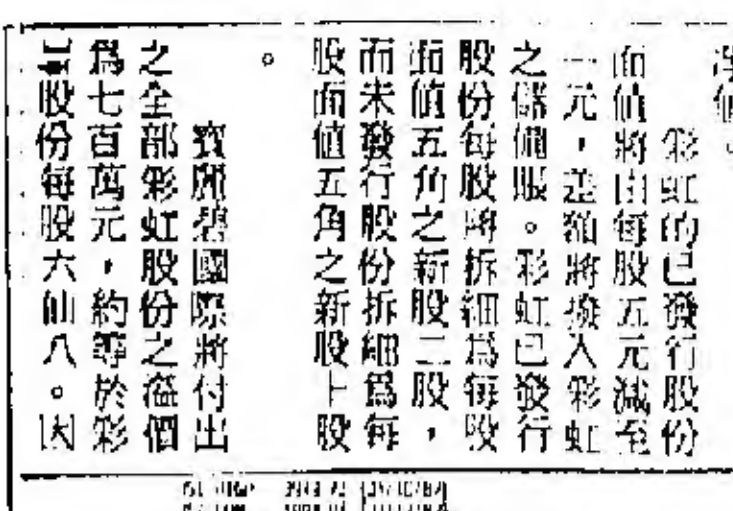 淨值。
彩虹的已發行股份
面值將由每股五元減至
一元，差額將撥入彩虹
之儲備賬。彩虹已發行
股份每股將拆細為每股
面值五角之新股二股，
而未發行股份拆細爲每
股面值五角之新股十股
。
寶麗碧國際將付出
之全部彩虹股份之溢價
爲七百萬元，約等於彩
虹股份每股六仙八。因